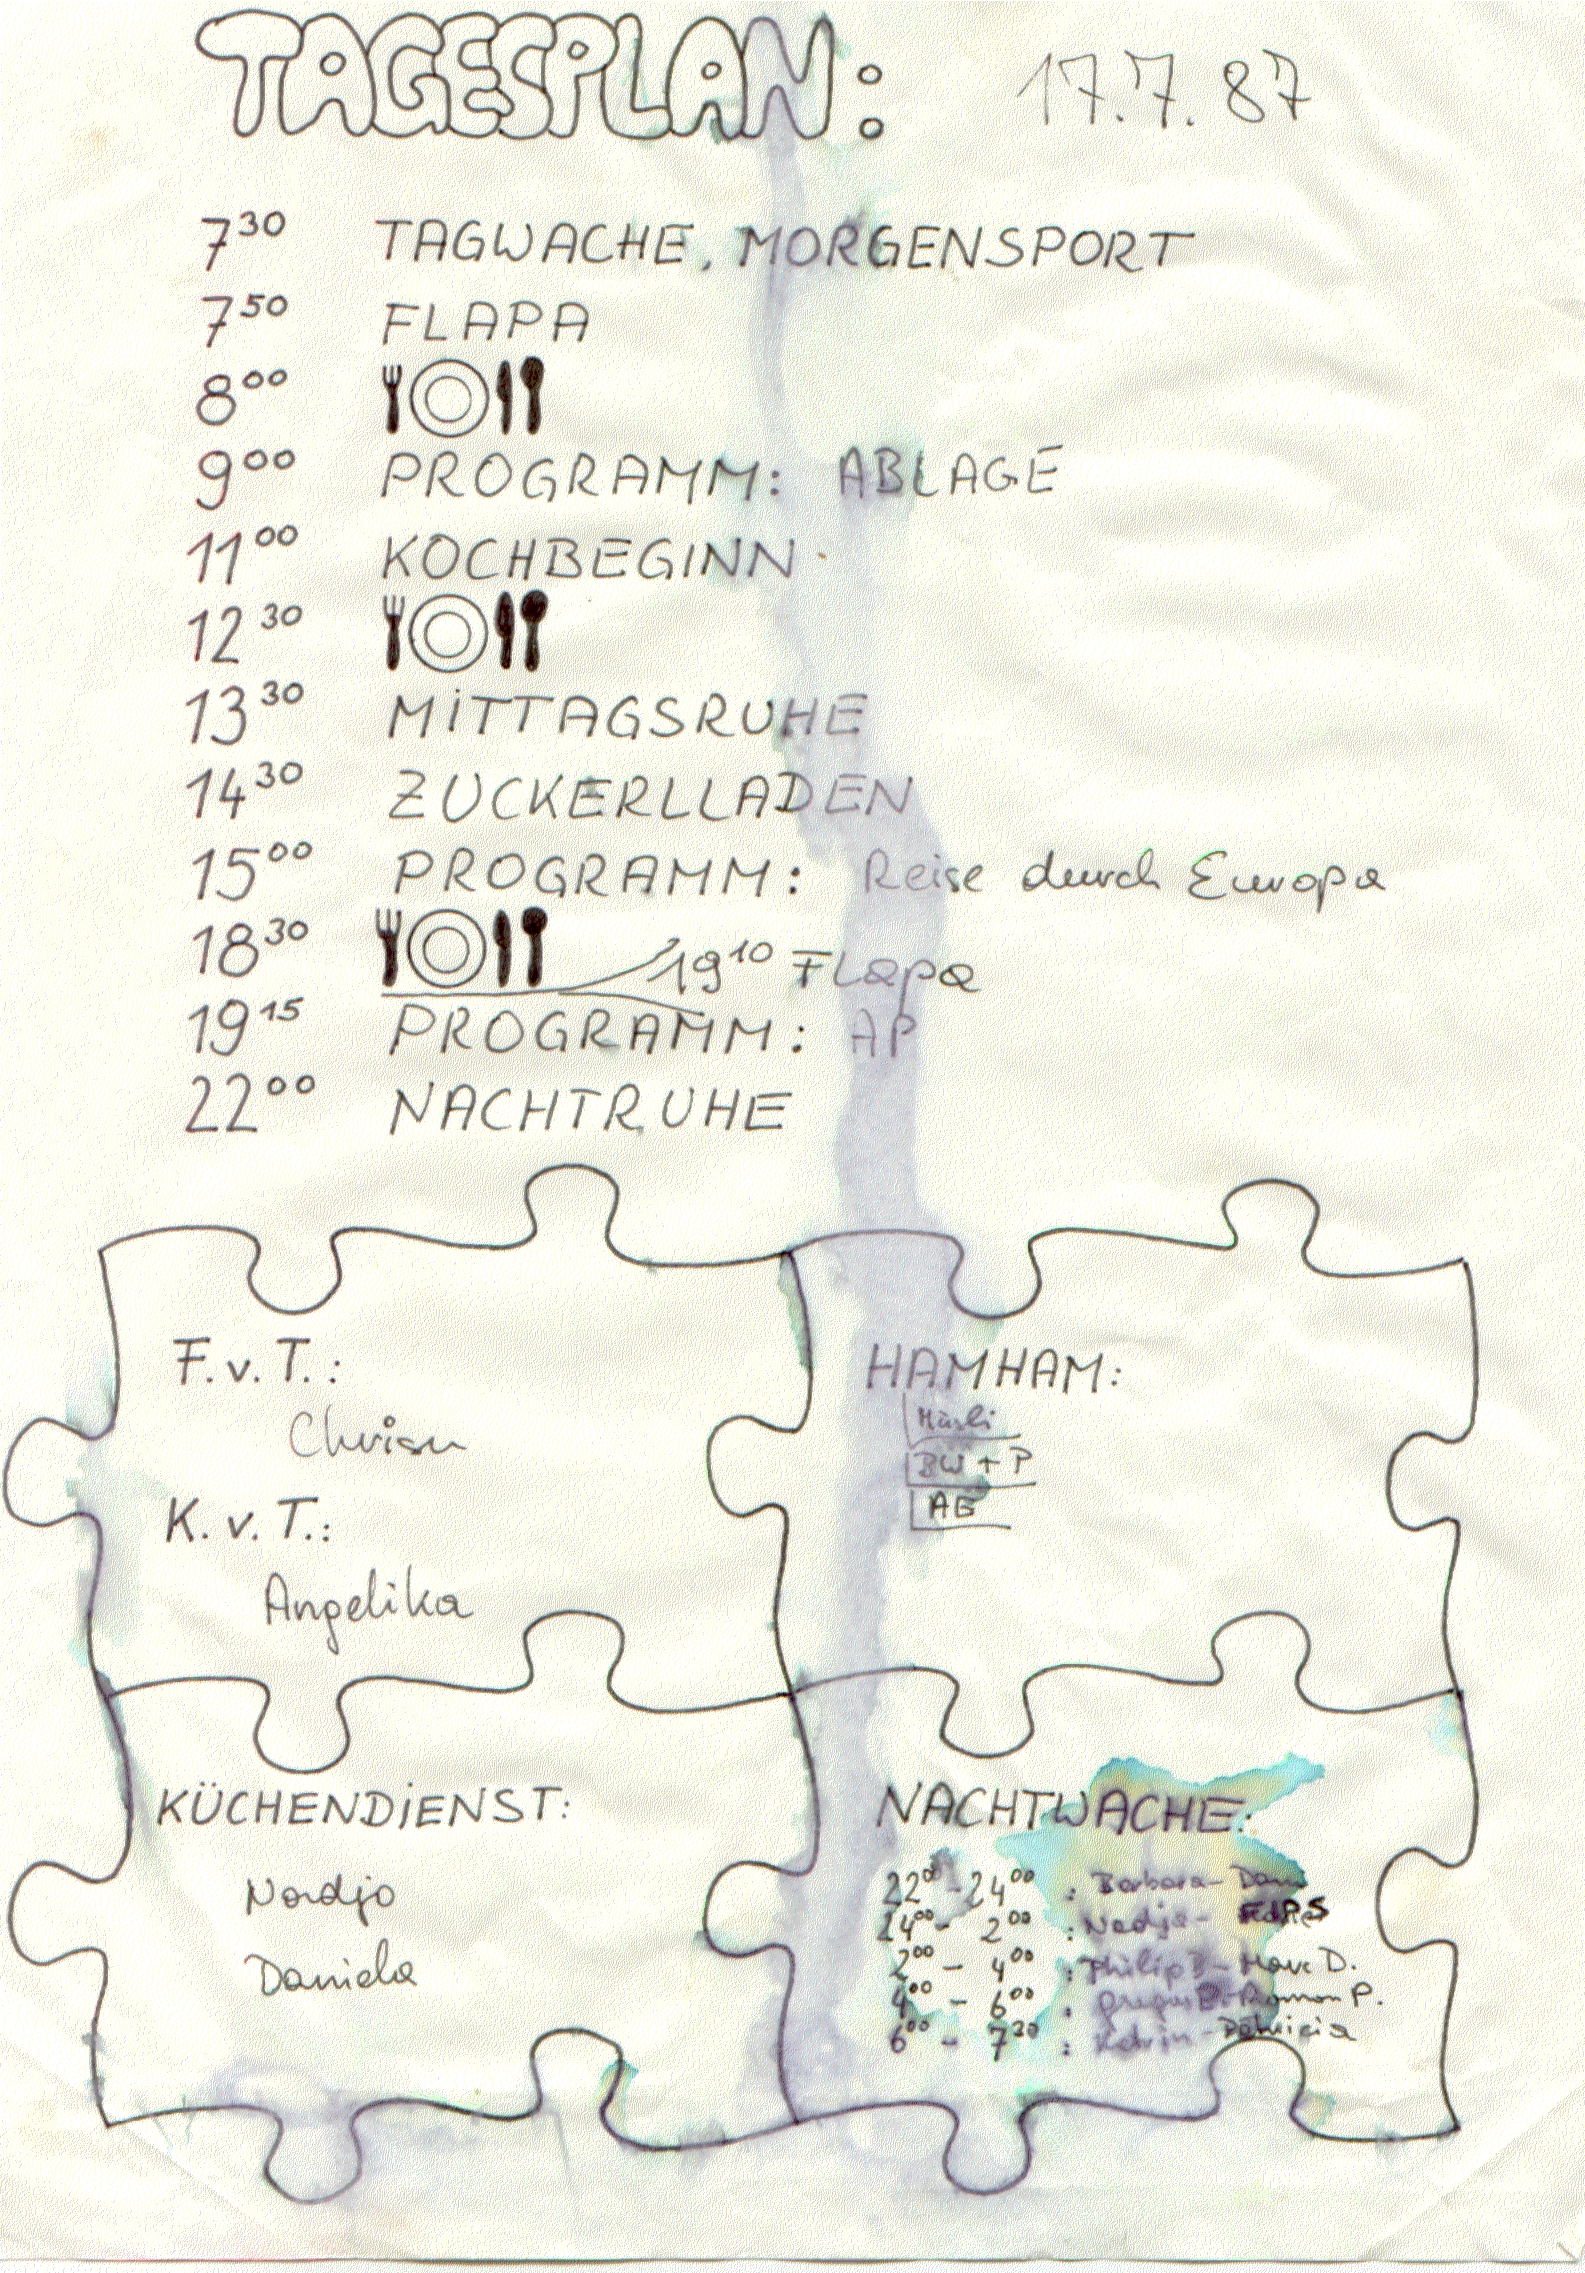 TAGESPLAN: 17.7.87
7³⁰ TAGWACHE, MORGENSPORT
7⁵⁰ FLAPA
8⁰⁰
9⁰⁰ PROGRAMM: ABLAGE
11⁰⁰ KOCHBEGINN
12³⁰
13³⁰ MITTAGSRUHE
14³⁰ ZUCKERLLADEN
15⁰⁰ PROGRAMM: Reise durch Europa
18³⁰ 19¹⁰ Flapa
19¹⁵ PROGRAMM: AP
22⁰⁰ NACHTRUHE
F.v.T.:
K.v.T.:
Angelika
HAMHAM:
Müsli
BW + P
AE
KÜCHENDIENST:
Nadja
Daniela
NACHTWACHE:
22⁰⁰ - 24⁰⁰ : Barbara -
24⁰⁰ - 2⁰⁰ : Nadja -
2⁰⁰ - 4⁰⁰ : Philip - Marc D.
4⁰⁰ - 6⁰⁰ : P.
6⁰⁰ - 7³⁰ : Katrin - Patricia